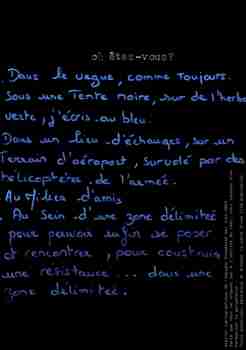 où êtes-vous?
. Dans le vague, comme toujours.
Sous une Tente noire, sur de l'herbe
verte, j'écris au bleu.
Dans un lieu d'échanges, sur un
Terrain d'aéroport, survolé par des
hélicoptères de l'armée.
. Au Milieu d'amis
. Au Sein d'une zone délimitée
pour pouvoir enfin se poser
et rencontrer, pour construire
une résistance ... dans une
zone délimitée.